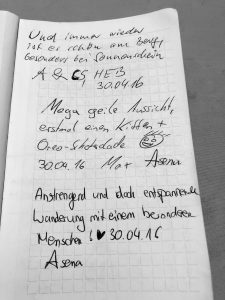 Und immer wieder
ist es schön am
besonders bei Sonnenschein
A & CS HEB
30.04.16
Mega geile Aussicht,
erstmal einen +
Oreo-Schokolade
30.04.16 Max Asena
Anstrengend und doch entspannende
Wanderung mit einem besonderen
Menschen ! ♥ 30.04.16
Asena